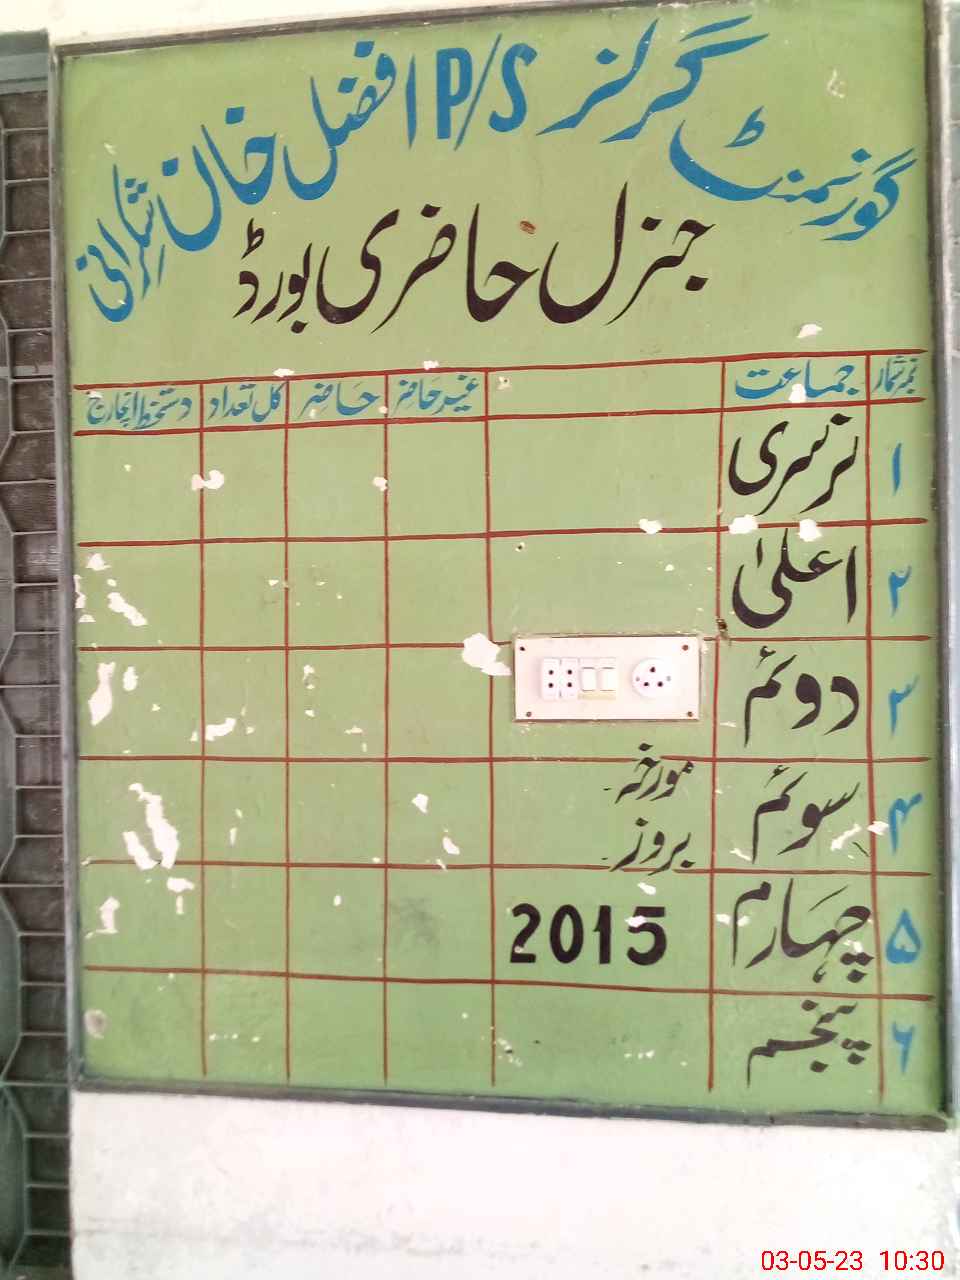 گورنمنٹ گرلز P/S افضل خان شکرانی
جنرل حاضری بورڈ
نمبر شمار جماعت غیر حاضر حاضر کل تعداد دستخط انچارج
۱ نرسری
۲ اعلیٰ
۳ دوئم
۴ سوئم مورخہ
بروز
۵ چہارم 2015
۶ پنجم
03-05-23 10:30